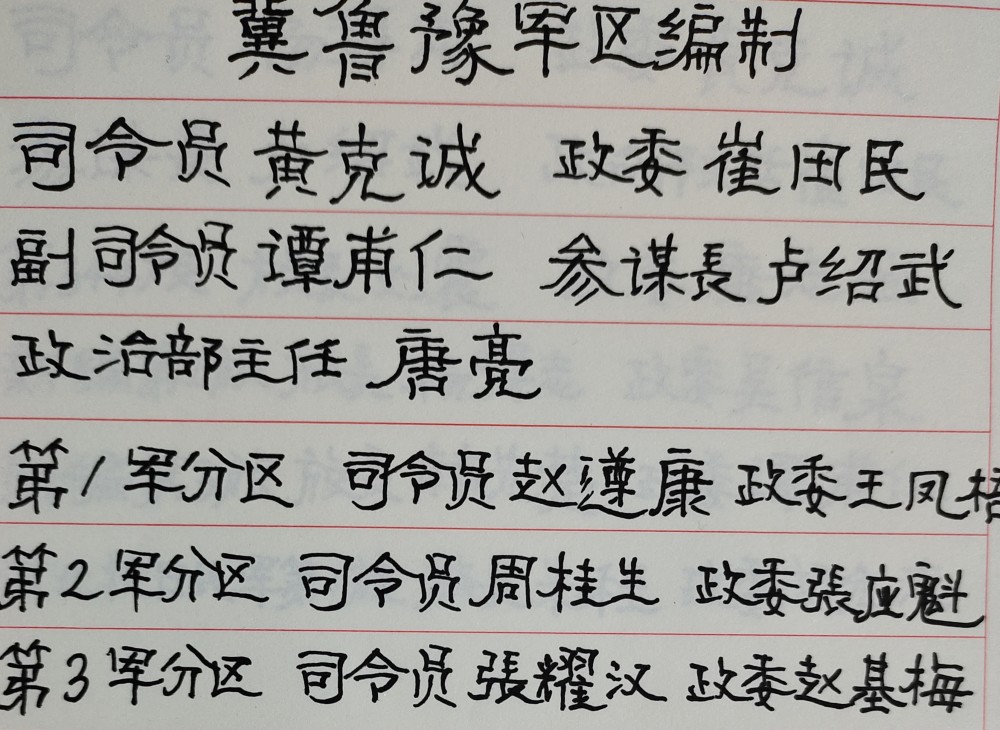 冀鲁豫军区编制
司令员 黄克诚 政委 崔田民
副司令员 谭甫仁 参谋長 卢绍武
政治部主任 唐亮
第1军分区 司令员赵遵康 政委王凤梧
第2军分区 司令员周桂生 政委張应魁
第3军分区 司令员張耀汉 政委赵基梅